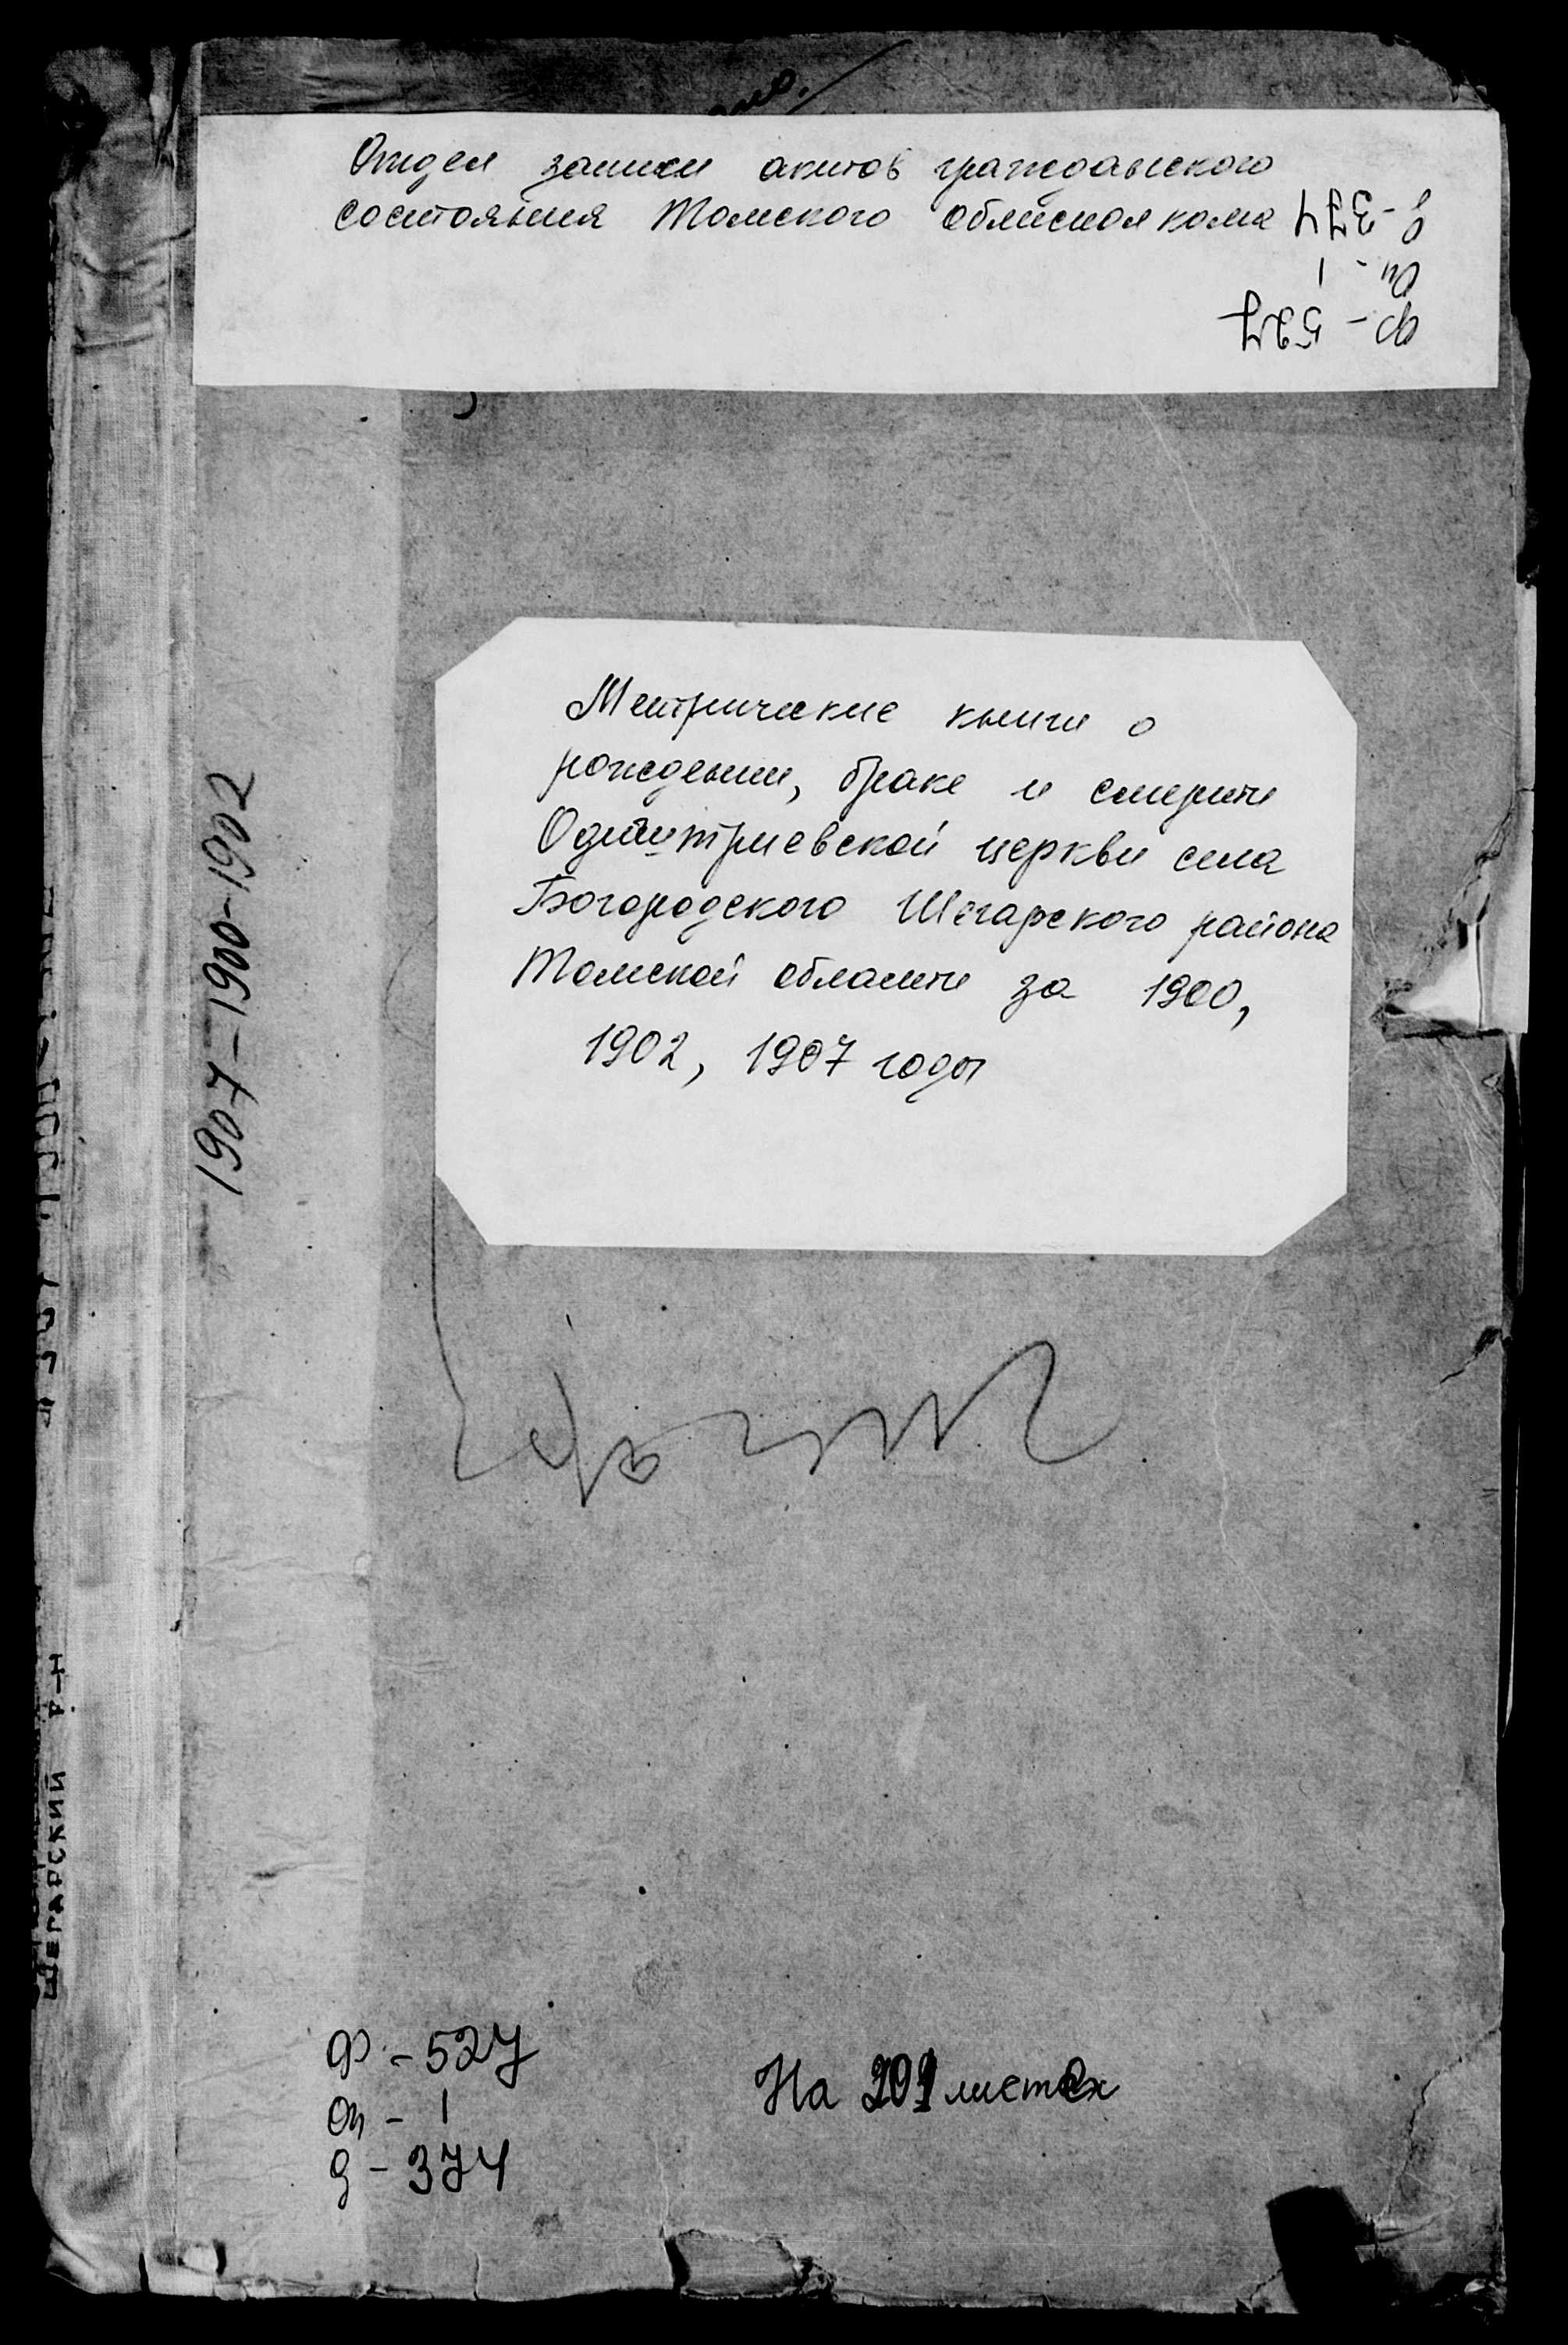 Отдел записи актов гражданского
состояния Томского облисполкома
д-374
Оп-1
Ф-527
Метрические книги о
рождении, браке и смерти
Одигитриевской церкви села
Богородского Шегарского района
Томской области за 1900,
1902, 1907 годы
1907-1900-1902
ШЕГАРСКИЙ Р-Н
Ф-527
Оп-1
д-374
На листах